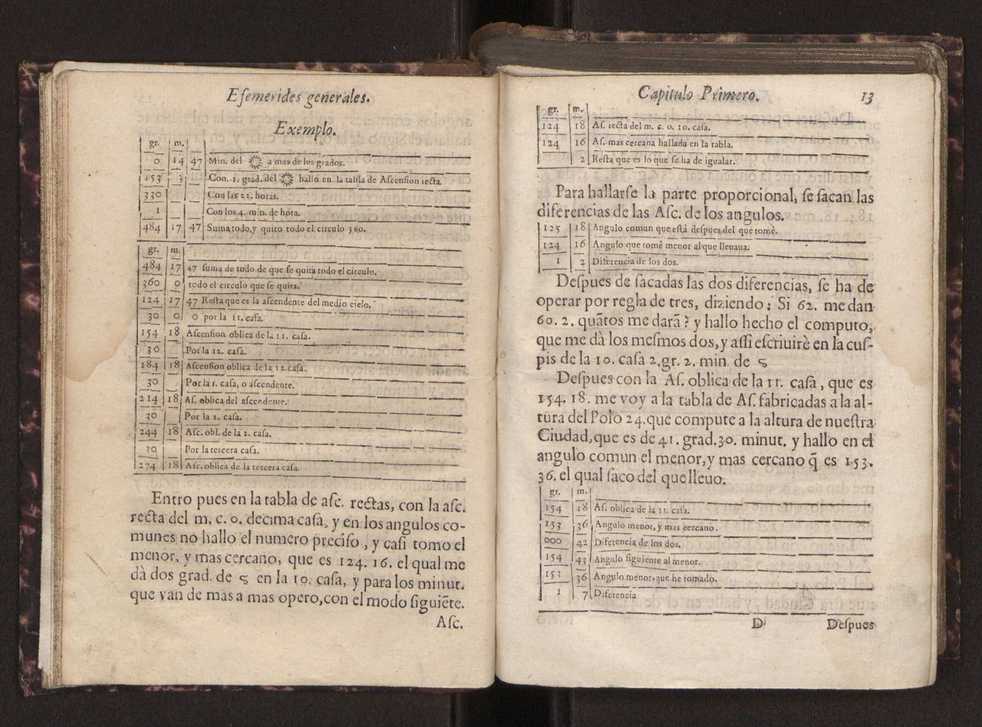 Efemerides generales.
Exemplo.
gr. m.
0 14 47 Min. del ☼ a mas de los grados.
153 3 Con. 1. grad. del ☼ hallo en la tabla de Ascension recta.
330 Con las 22. horas.
1 Con los 4. min. de hora.
484 17 47 Suma todo, y quito todo el circulo 360.
gr. m.
484 17 47 suma de todo de que se quita todo el circulo.
360 0 todo el circulo que se quita.
124 17 47 Resta que es la ascendente del medio cielo.
30 0 0 por la 11. casa.
154 18 Ascension oblica de la 11. casa.
30 Por la 12. casa.
184 18 Ascension oblica de la 12. casa.
30 Por la 1. casa, o ascendente.
214 18 As. oblica del ascendente.
30 Por la 2. casa.
244 18 Asc. obl. de la 2. casa.
30 Por la tercera casa.
274 18 Asc. oblica de la tercera casa.
Entro pues en la tabla de asc. rectas, con la asc.
recta del m. c. o. decima casa, y en los angulos co-
munes no hallo el numero preciso, y casi tomo el
menor, y mas cercano, que es 124. 16. el qual me
dà dos grad. de ♌ en la 10. casa, y para los minut.
que van de mas a mas opero, con el modo siguiẽte.
Asc.
Capitulo Primero. 13
gr. m.
124 18 As. recta del m. c. o. 10. casa.
124 16 As. mas cercana hallada en la tabla.
2 Resta que es lo que se ha de igualar.
Para hallarse la parte proporcional, se sacan las
diferencias de las Asc. de los angulos.
125 18 Angulo comun que està despues del que tomè.
124 16 Angulo que tomè menor al que lleuaua.
1 2 Diferencia de los dos.
Despues de sacadas las dos diferencias, se ha de
operar por regla de tres, diziendo; Si 62. me dan
60. 2. quãtos me darã? y hallo hecho el computo,
que me dà los mesmos dos, y assi escriuirè en la cus-
pis de la 10. casa 2. gr. 2. min. de ♌
Despues con la As. oblica de la 11. casa, que es
154. 18. me voy a la tabla de As. fabricadas a la al-
tura del Polo 24. que compute a la altura de nuestra
Ciudad, que es de 41. grad. 30. minut. y hallo en el
angulo comun el menor, y mas cercano q̃ es 153.
36. el qual saco del que lleuo.
gr. m.
154 18 As. oblica de la 11. casa.
153 36 Angulo menor, y mas cercano.
000 42 Diferencia de los dos.
154 43 Angulo siguiente al menor.
153 36 Angulo menor, que he tomado.
1 7 Diferencia
D Despues